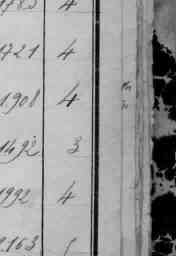 1721 4
1908 4
1492 3
1992 4
2163